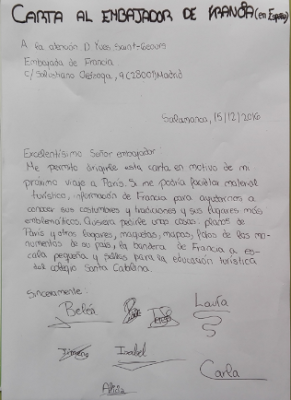 CARTA AL EMBAJADOR DE FRANCIA (en España)
A la atención D. Yves Saint-Geours
Embajada de Francia
C/ Salustiano Olózaga, 9 (28001) Madrid
Salamanca, 15/12/2016
Excelentísimo Señor embajador:
Me permito dirigirle esta carta en motivo de mi
próximo viaje a París. Si me podría facilitar material
turístico, información de Francia para ayudarnos a
conocer sus costumbres y tradiciones y sus lugares más
emblemáticos. Quisiera recibir unas cosas: planos de
París y otros lugares, maquetas, mapas, fotos de los mo-
numentos de su país, la bandera de Francia a es-
cala pequeña y sellos para la educación turística
del colegio Santa Catalina.
Sinceramente:
Belén
Laura
Jimena Isabel
Carla
Alicia